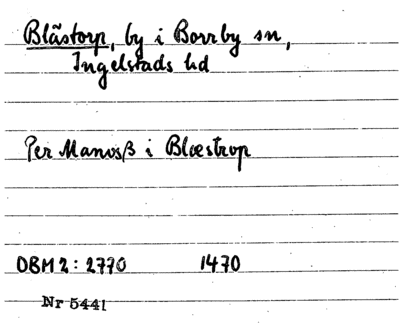 Blästorp, by i Borrby sn,
Ingelstads hd
Per Manosß i Blæstrop
DBM 2: 2770 1470
Nr 5441